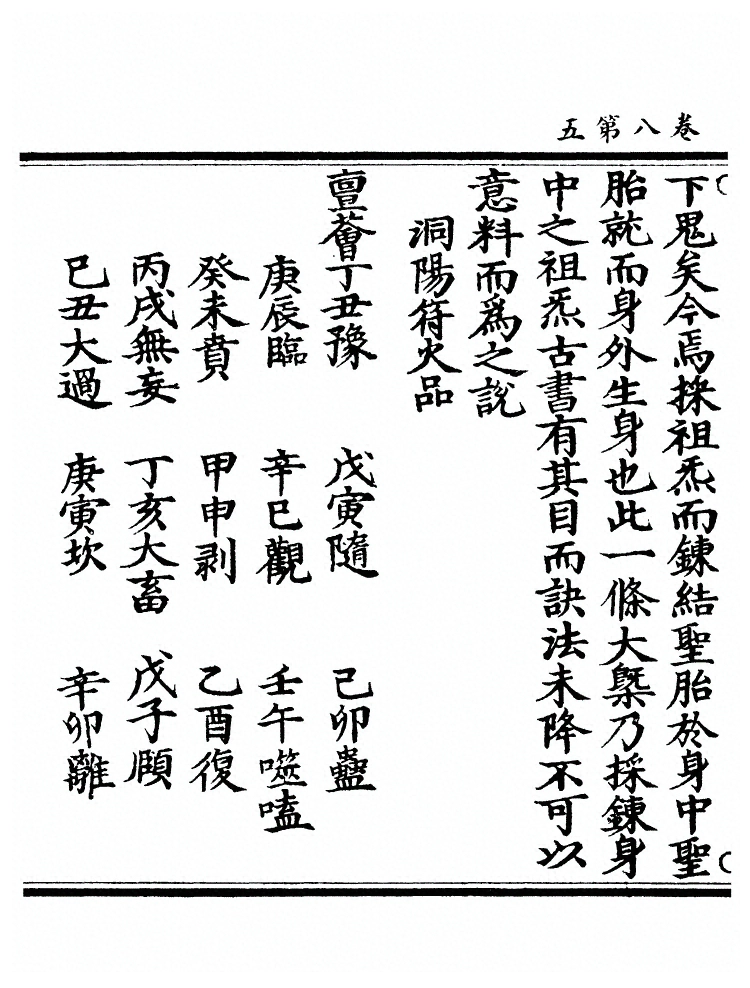 卷八第五
下鬼矣今焉採祖炁而鍊結聖胎於身中聖
胎就而身外生身也此一條大槩乃採鍊身
中之祖炁古書有其目而訣法未降不可以
意料而爲之說
洞陽符火品
亶薈丁丑豫 戊寅隨 己卯蠱
庚辰臨 辛巳觀 壬午噬嗑
癸未賁 甲申剥 乙酉復
丙戌無妄 丁亥大畜 戊子頤
己丑大過 庚寅坎 辛卯離